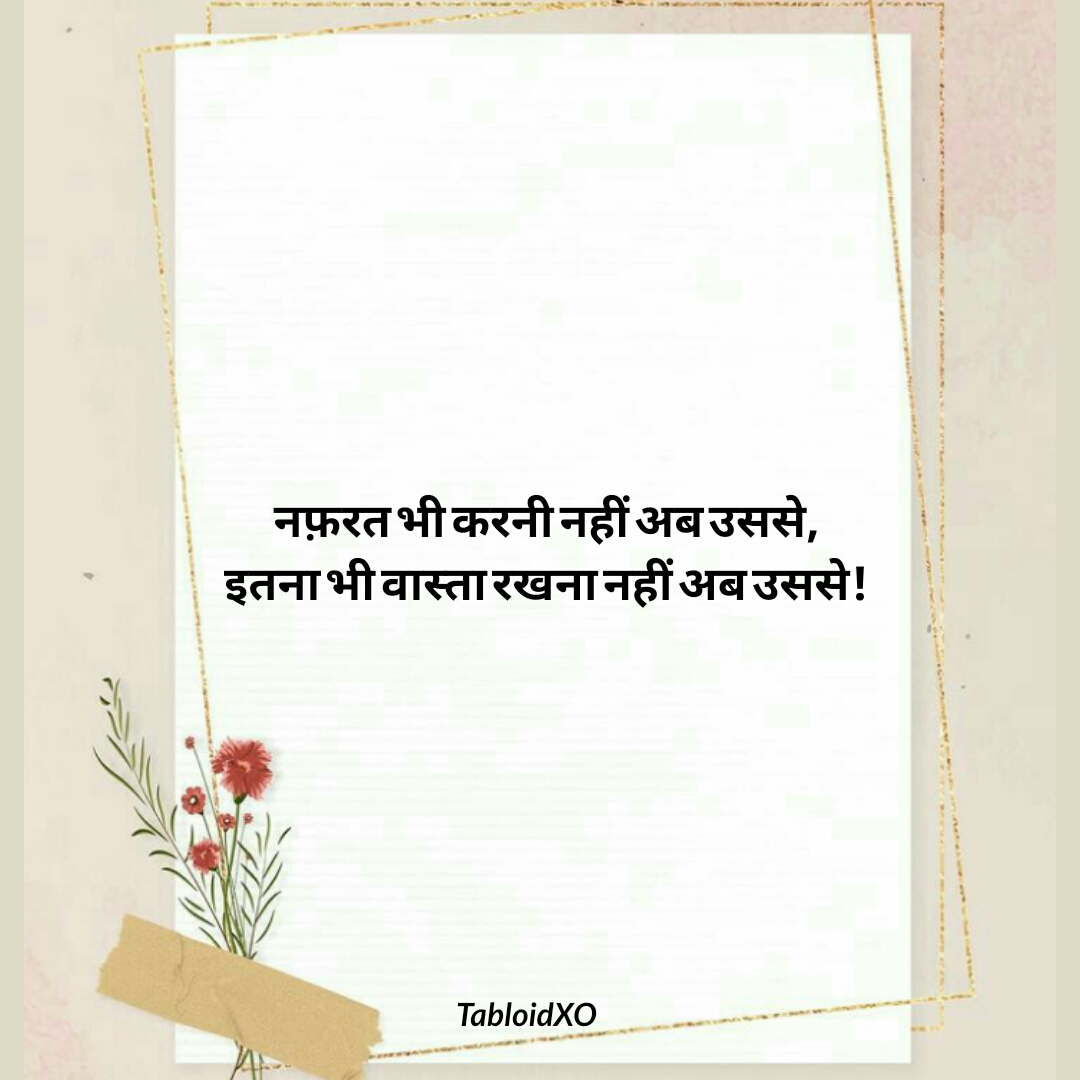 नफ़रत भी करनी नहीं अब उससे,
इतना भी वास्ता रखना नहीं अब उससे!
TabloidXO